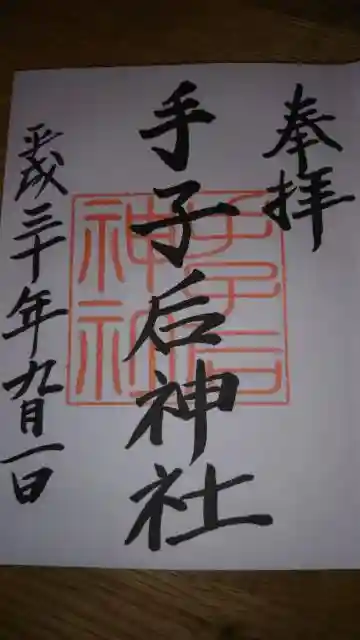 奉拝
手子后神社
手子后
神社
平成三十年九月一日